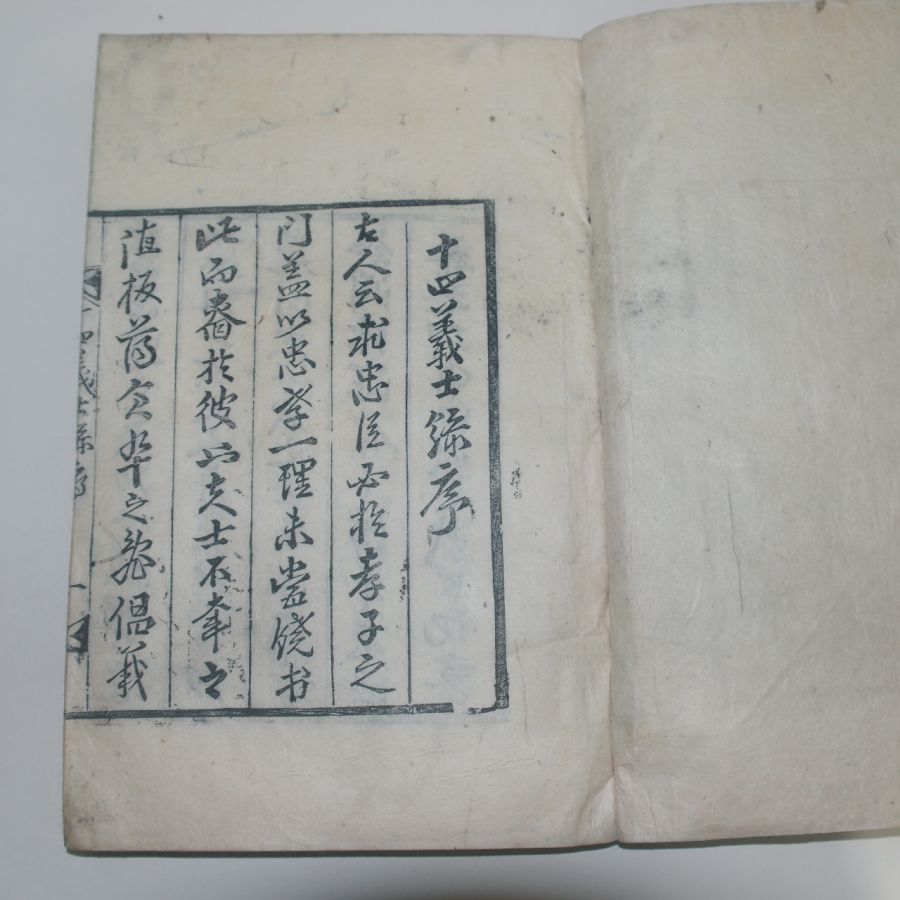 十四義士錄序
古人云求忠臣必於孝子之
门盖以忠孝一理未甞饒
此而嗇於彼也夫士不幸
值板蕩倉卒之亂倡義
十四義士錄序 一